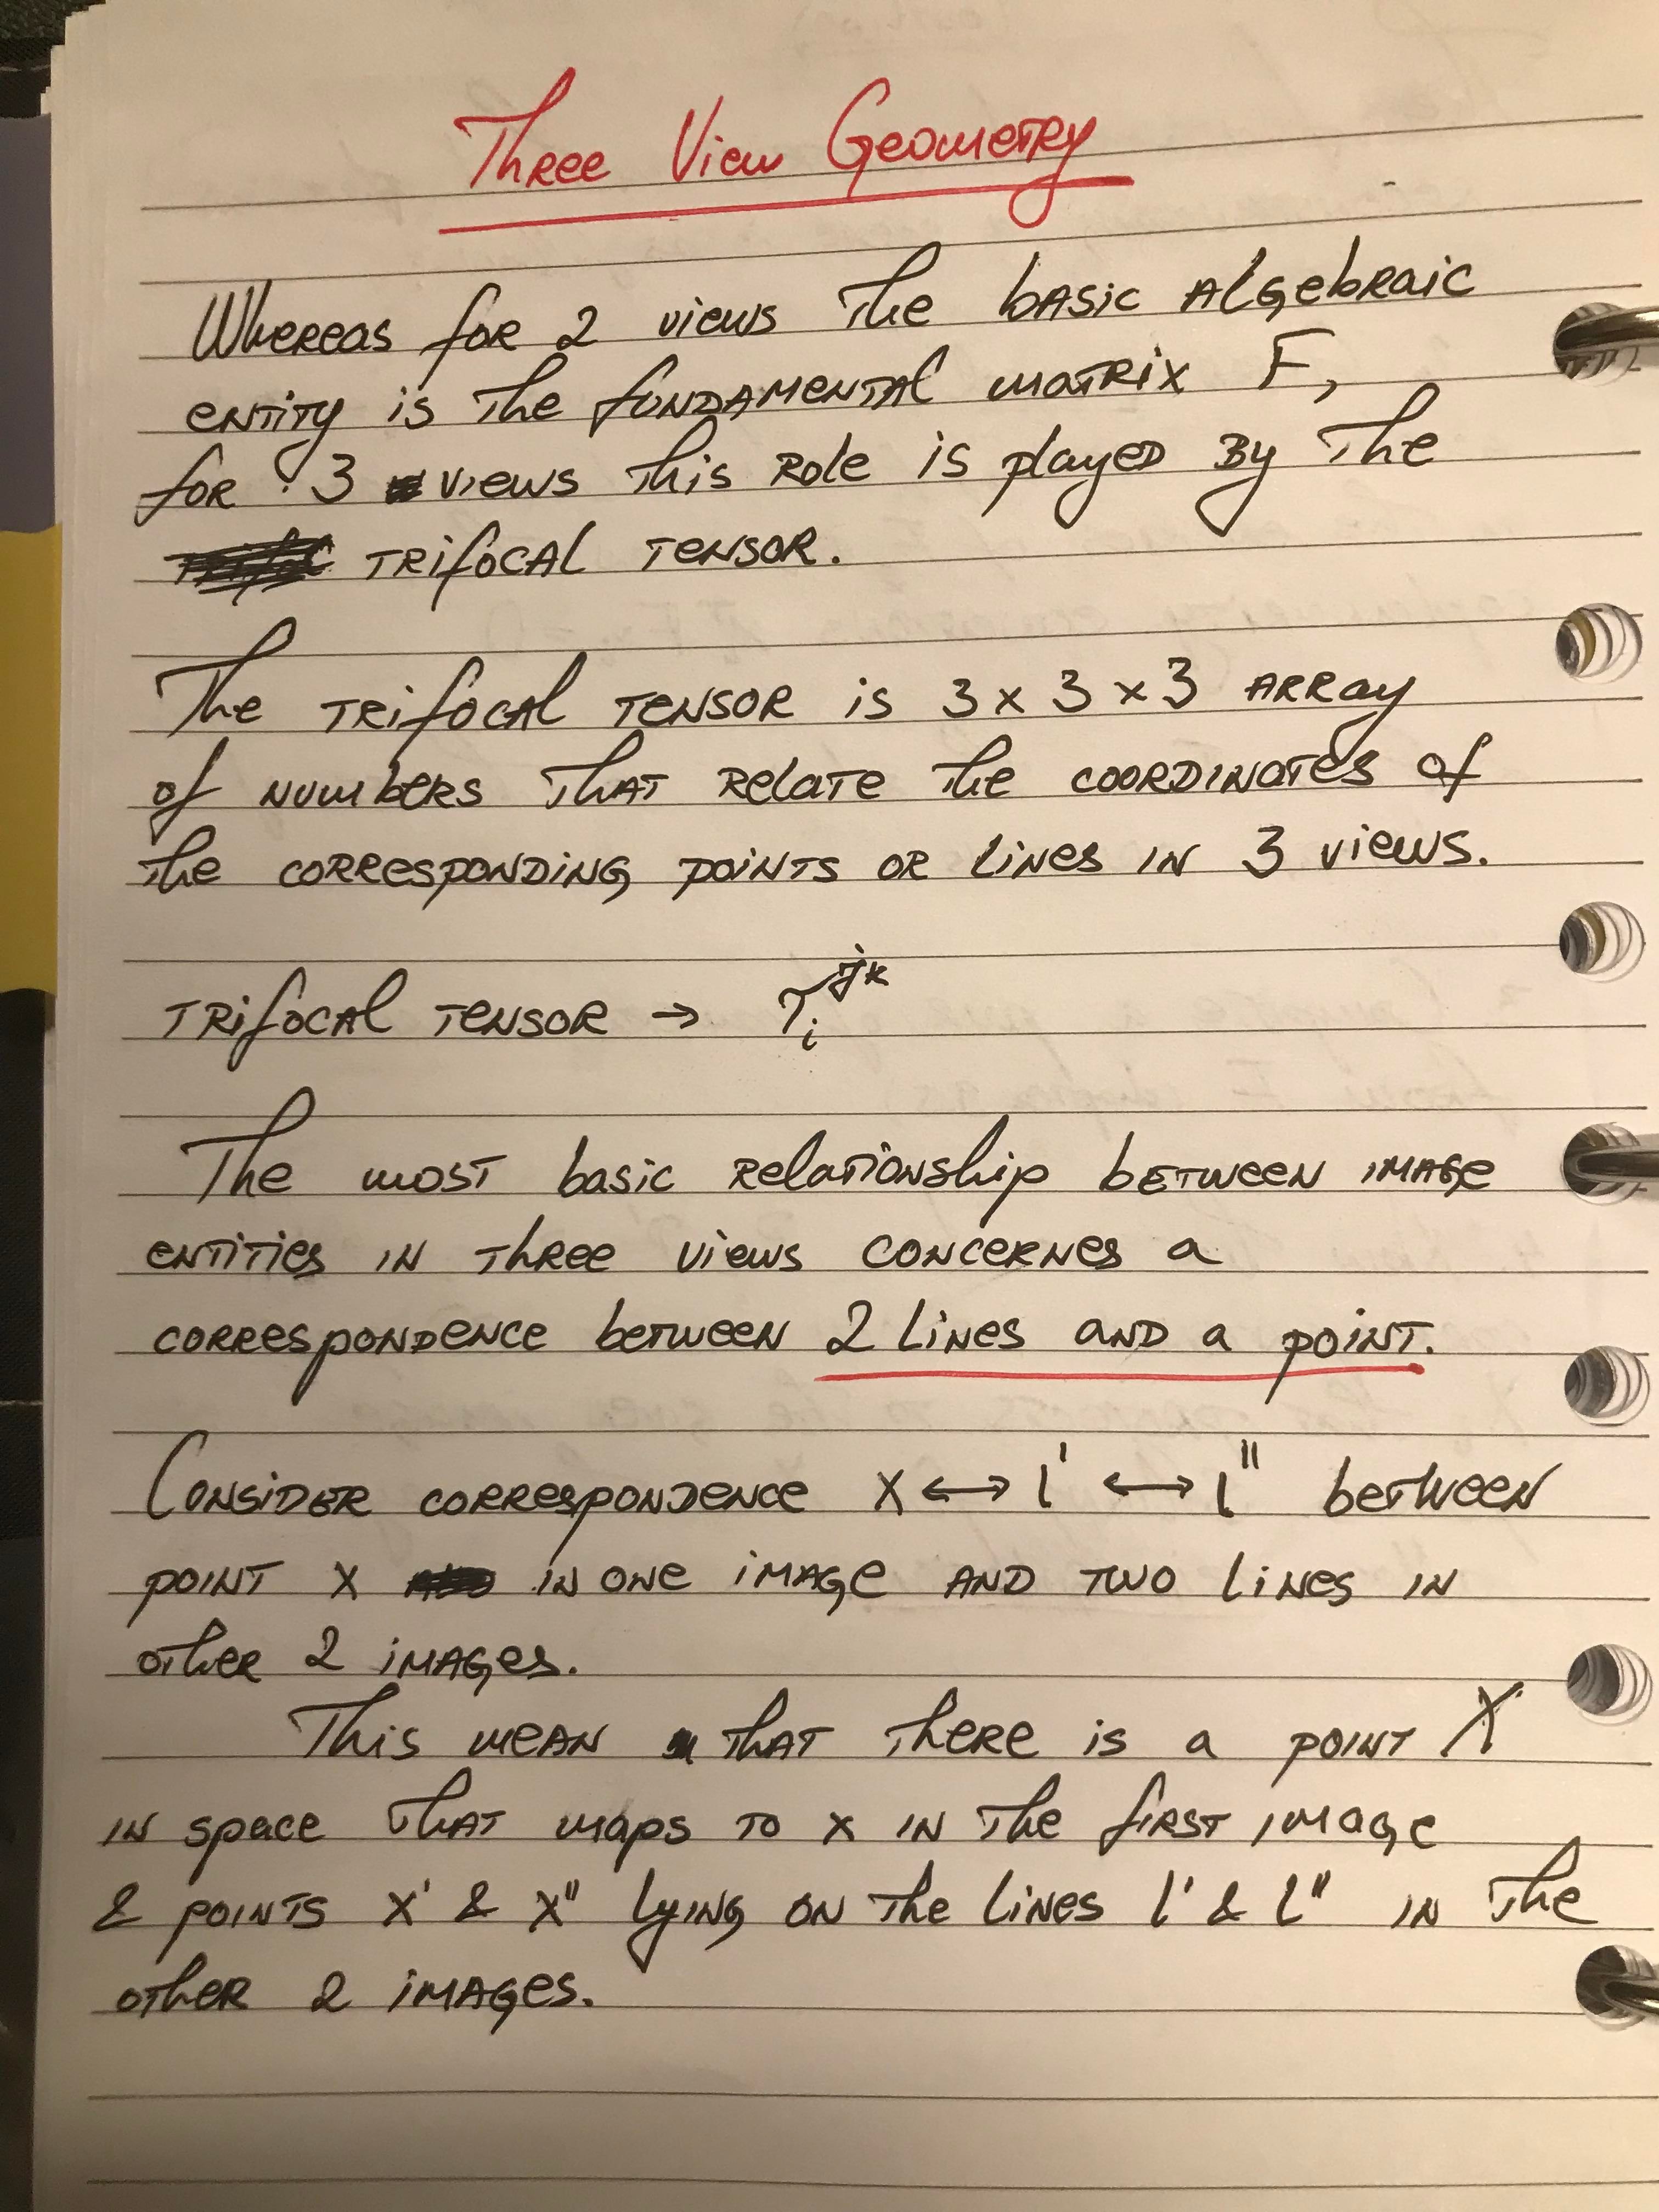 Three View Geometry
Whereas for 2 views the basic algebraic
entity is the fundamental matrix F,
for 3 views this role is played by the
trifocal tensor.
The trifocal tensor is 3 x 3 x 3 array
of numbers that relate the coordinates of
the corresponding points or lines in 3 views.
Trifocal tensor → T_i^jk
The most basic relationship between image
entities in three views concernes a
correspondence between 2 lines and a point.
Consider correspondence x ↔ l' ↔ l'' between
point x in one image and two lines in
other 2 images.
This mean that there is a point X
in space that maps to x in the first image
& points x' & x'' lying on the lines l' & l'' in the
other 2 images.